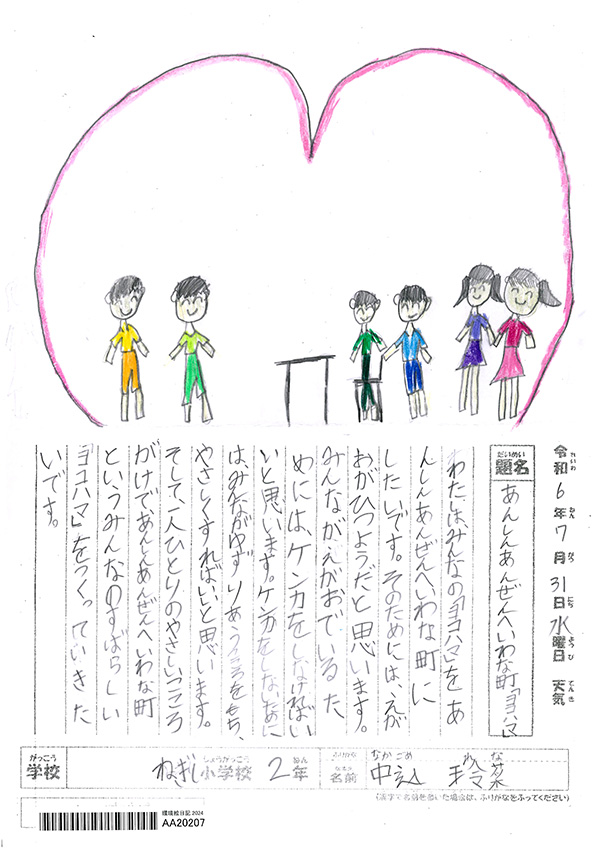 令和6年7月31日水曜日 天気
題名 あんしんあんぜんへいわな町「ヨコハマ」
わたしは、みんなの「ヨコハマ」をあ
んしんあんぜんへいわな町に
したいです。そのためには、えが
おがひつようだと思います。
みんながえがおでいるた
めには、ケンカをしなければい
いと思います。ケンカをしないために
は、みんながゆずりあう心をもち、
やさしくすればいいと思います。
そして、一人ひとりのやさしいこころ
がけであんしんあんぜんへいわな町
というみんなのすばらしい
「ヨコハマ」をつくっていきた
いです。
学校 ねぎし小学校 2年 名前 中込 玲菜
(漢字で名前を書いた場合は、ふりがなをふってください)
環境絵日記2024
AA20207